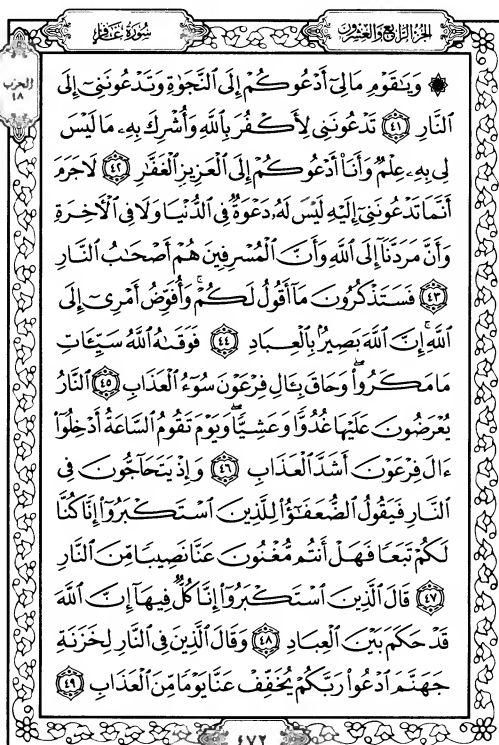 الجزء الرابع والعشرون
سورة غافر
الحزب
٤٨
۞ وَيَٰقَوْمِ مَا لِيٓ أَدْعُوكُمْ إِلَى ٱلنَّجَوٰةِ وَتَدْعُونَنِيٓ إِلَى
ٱلنَّارِ ٤١ تَدْعُونَنِي لِأَكْفُرَ بِٱللَّهِ وَأُشْرِكَ بِهِۦ مَا لَيْسَ
لِي بِهِۦ عِلْمٌ وَأَنَا۠ أَدْعُوكُمْ إِلَى ٱلْعَزِيزِ ٱلْغَفَّٰرِ ٤٢ لَا جَرَمَ
أَنَّمَا تَدْعُونَنِيٓ إِلَيْهِ لَيْسَ لَهُۥ دَعْوَةٌ فِي ٱلدُّنْيَا وَلَا فِي ٱلْأَخِرَةِ
وَأَنَّ مَرَدَّنَآ إِلَى ٱللَّهِ وَأَنَّ ٱلْمُسْرِفِينَ هُمْ أَصْحَٰبُ ٱلنَّارِ
٤٣ فَسَتَذْكُرُونَ مَآ أَقُولُ لَكُمْۚ وَأُفَوِّضُ أَمْرِيٓ إِلَى
ٱللَّهِۚ إِنَّ ٱللَّهَ بَصِيرٌۢ بِٱلْعِبَادِ ٤٤ فَوَقَىٰهُ ٱللَّهُ سَيِّـَٔاتِ
مَا مَكَرُوا۟ۖ وَحَاقَ بِـَٔالِ فِرْعَوْنَ سُوٓءُ ٱلْعَذَابِ ٤٥ ٱلنَّارُ
يُعْرَضُونَ عَلَيْهَا غُدُوًّا وَعَشِيًّاۖ وَيَوْمَ تَقُومُ ٱلسَّاعَةُ أَدْخِلُوٓا۟
ءَالَ فِرْعَوْنَ أَشَدَّ ٱلْعَذَابِ ٤٦ وَإِذْ يَتَحَآجُّونَ فِي
ٱلنَّارِ فَيَقُولُ ٱلضُّعَفَٰٓؤُا۟ لِلَّذِينَ ٱسْتَكْبَرُوٓا۟ إِنَّا كُنَّا
لَكُمْ تَبَعًا فَهَلْ أَنتُم مُّغْنُونَ عَنَّا نَصِيبًا مِّنَ ٱلنَّارِ
٤٧ قَالَ ٱلَّذِينَ ٱسْتَكْبَرُوٓا۟ إِنَّا كُلٌّ فِيهَآ إِنَّ ٱللَّهَ
قَدْ حَكَمَ بَيْنَ ٱلْعِبَادِ ٤٨ وَقَالَ ٱلَّذِينَ فِي ٱلنَّارِ لِخَزَنَةِ
جَهَنَّمَ ٱدْعُوا۟ رَبَّكُمْ يُخَفِّفْ عَنَّا يَوْمًا مِّنَ ٱلْعَذَابِ ٤٩
٤٧٢